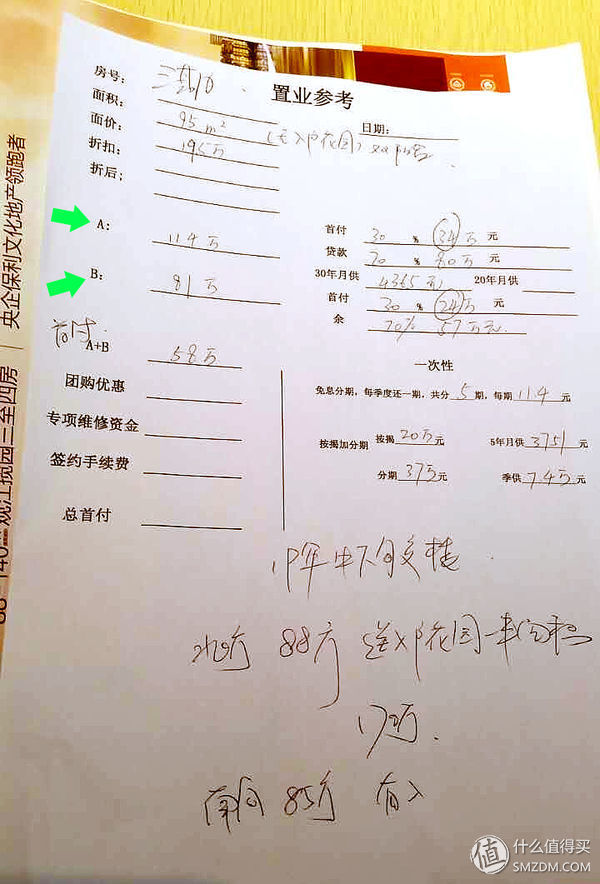 置业参考
房号：
面积： 95m²
面价： 195万
日期：
折扣：
折后：
A： 114万
首付 30 % 34万 元
贷款 70 % 80万 元
30年月供 4365 元 20年月供
B： 81万
首付 30 % 24万 元
余 70%
首付
A+B 58万
团购优惠
专项维修资金
签约手续费
总首付
一次性
免息分期，每季度还一期，共分 5 期，每期 11.4 元
按揭加分期 按揭 20万 元 5年月供 3751 元
分期 37万 元 季供 7.4万 元
88方 送入户花园一半面积
17万
南向 85方
央企保利文化地产领跑者
观江揽园三至四房
值 什么值得买
SMZDM.COM